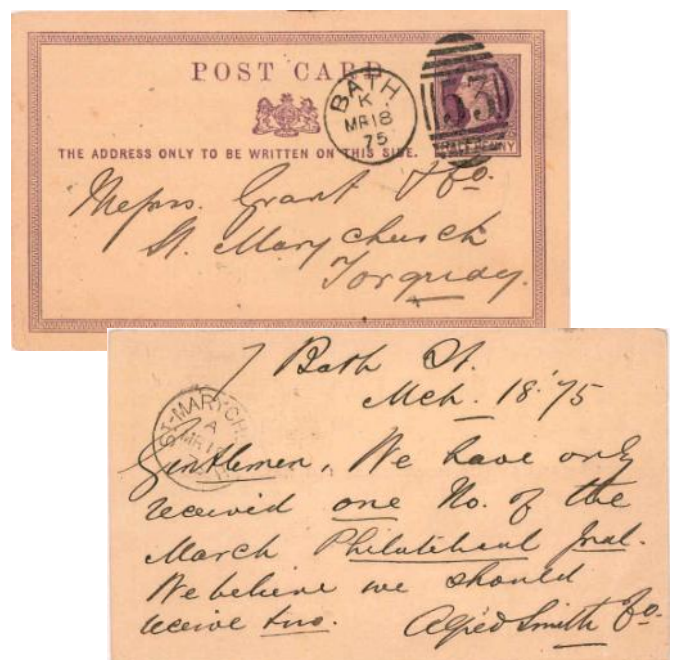 POST CARD
BATH
K
MR 18
75
53
HALFPENNY
THE ADDRESS ONLY TO BE WRITTEN ON THIS SIDE.
Messrs. Grant & Co.
St. Mary church
Torquay.
7 Bath St.
Mch. 18.'75
ST-MARYCH
A
MR
Gentlemen, We have only
received one No. of the
March Philatelical Jnal.
We believe we should
receive two. Alfred Smith & Co.